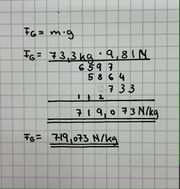 F_G = m · g
F_G = 73,3kg · 9,81N
6597
5864
733
1 1 2
719,073N/kg
F_G = 719,073 N/kg